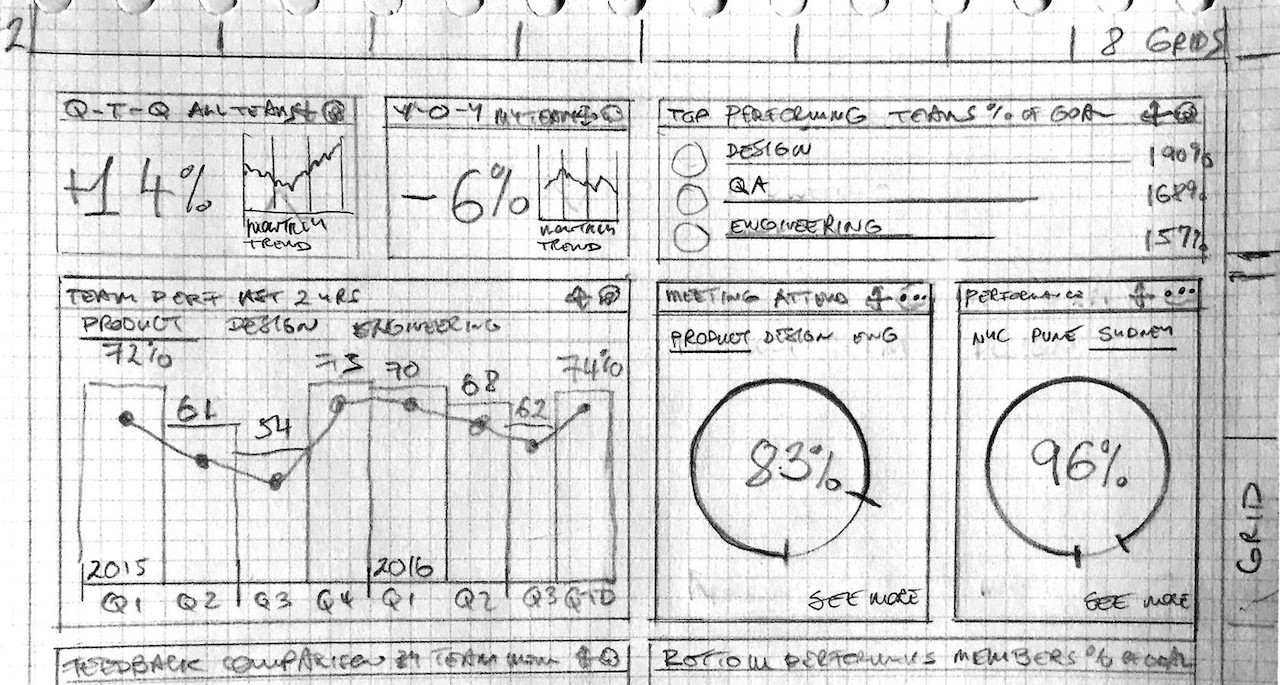 2
8 GRIDS
Q-T-Q ALL TEAMS
+14%
MONTHLY
TREND
Y-O-Y MY TEAMS
-6%
MONTHLY
TREND
TOP PERFORMING TEAMS % OF GOAL
DESIGN 190%
QA 168%
ENGINEERING 157%
TEAM PERF LAST 2 YRS
PRODUCT DESIGN ENGINEERING
72% 61 54 73 70 68 62 74%
2015 2016
Q1 Q2 Q3 Q4 Q1 Q2 Q3 QTD
MEETING ATTEND
PRODUCT DESIGN ENG
83%
SEE MORE
PERFORMANCE
NYC PUNE SYDNEY
96%
SEE MORE
GRID
FEEDBACK COMPARISON TEAM
BOTTOM PERFORMING MEMBERS % OF GOAL